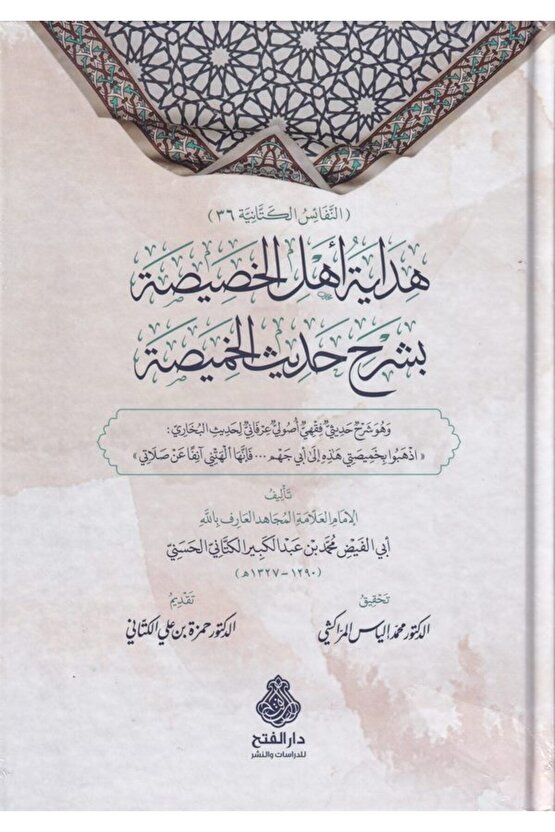 (النَّفَائِسُ الكَتَّانِيَّة ٣٦)
هِدَايَةُ أَهْلِ الخَصِيصَة
بِشَرْحِ حَدِيثِ الخَمِيصَة
وَهُوَ شَرْحٌ حَدِيثِيٌّ فِقْهِيٌّ أُصُولِيٌّ عِرْفَانِيٌّ لِحَدِيثِ البُخَارِيّ:
«اذْهَبُوا بِخَمِيصَتِي هَذِهِ إِلَى أَبِي جَهْم ... فَإِنَّهَا أَلْهَتْنِي آنِفًا عَنْ صَلَاتِي»
تَأْلِيفُ
الإِمَامِ العَلَّامَةِ المُجَاهِدِ العَارِفِ بِاللَّهِ
أَبِي الفَيْضِ مُحَمَّد بْن عَبْد الكَبِير الكَتَّانِيّ الحَسَنِيّ
(١٢٩٠ - ١٣٢٧هـ)
تَحْقِيقُ
الدكتور محمد إلياس المراكشي
تَقْدِيمُ
الدكتور حمزة بن علي الكتاني
دار الفتح
للدراسات والنشر